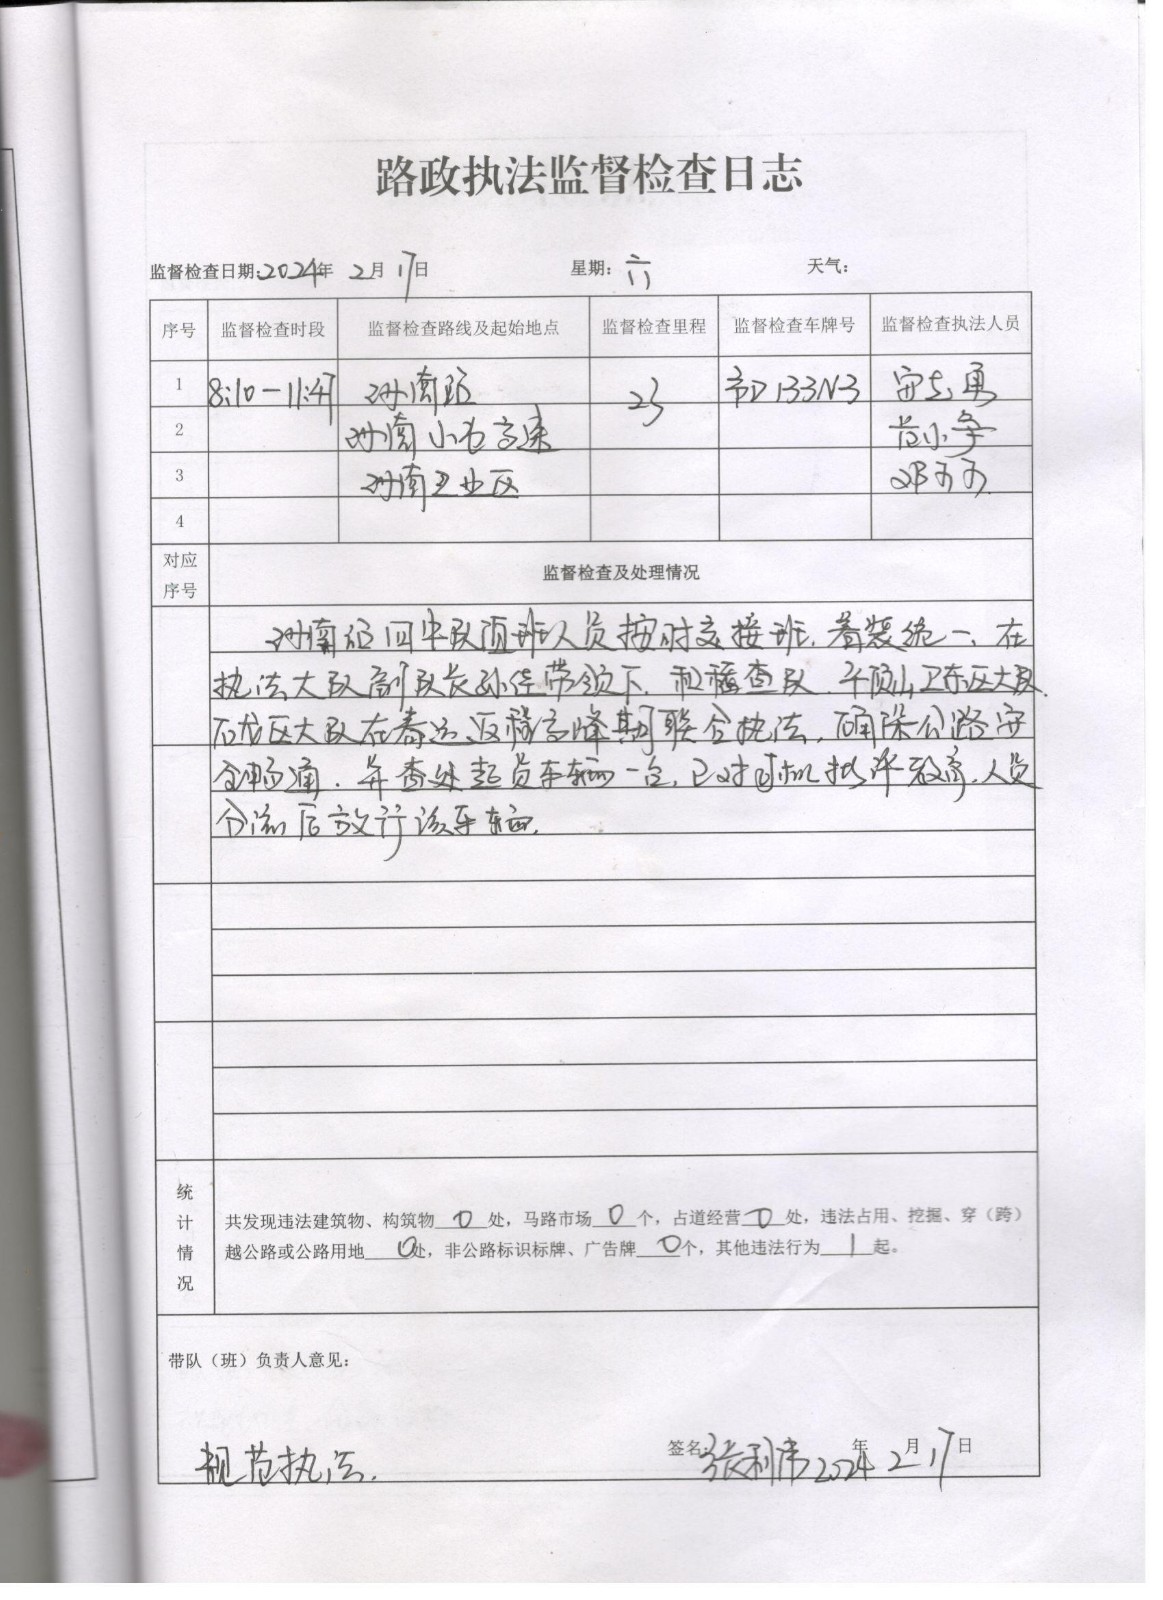 路政执法监督检查日志
监督检查日期:2024年 2月17日 星期:六 天气:
序号 监督检查时段 监督检查路线及起始地点 监督检查里程 监督检查车牌号 监督检查执法人员
1 8:10-11:47 洲南站 23 133N3 勇
2 洲南 高速 小
3 洲南工业区 邓
4
对应
序号
监督检查及处理情况
四中队值班人员按时交接班,着装统一,在
执法大队副队长孙佳带领下,和稽查队,平顶山卫东区大队
石龙区大队在春运返程高峰期间联合执法,确保公路安
全畅通,并查处超员车辆一台,已对司机批评教育,人员
分流后放行该车辆.
统
计
情
况
共发现违法建筑物、构筑物 0 处,马路市场 0 个,占道经营 0 处,违法占用、挖掘、穿(跨)
越公路或公路用地 0处,非公路标识标牌、广告牌 0个,其他违法行为 1 起。
带队(班)负责人意见:
规范执法.
签名:张利 2024年2月17日